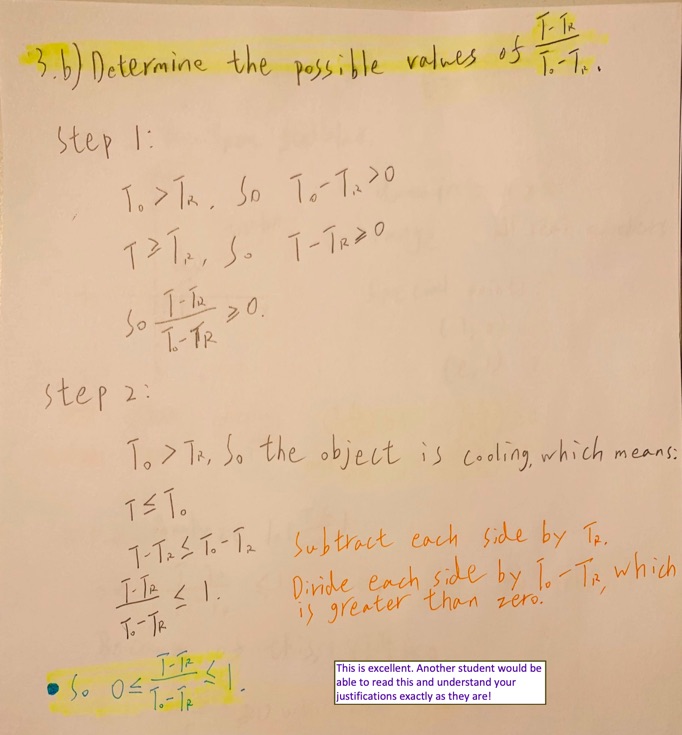 3.b) Determine the possible values of (T-T_R)/(T_0-T_R).
Step 1:
T_0 > T_R, So T_0-T_R > 0
T ≥ T_R, So T-T_R ≥ 0
So (T-T_R)/(T_0-T_R) ≥ 0.
Step 2:
T_0 > T_R, So the object is cooling, which means:
T ≤ T_0
T-T_R ≤ T_0-T_R Subtract each side by T_R.
(T-T_R)/(T_0-T_R) ≤ 1. Divide each side by T_0-T_R, which
is greater than zero.
• So 0 ≤ (T-T_R)/(T_0-T_R) ≤ 1.
This is excellent. Another student would be
able to read this and understand your
justifications exactly as they are!